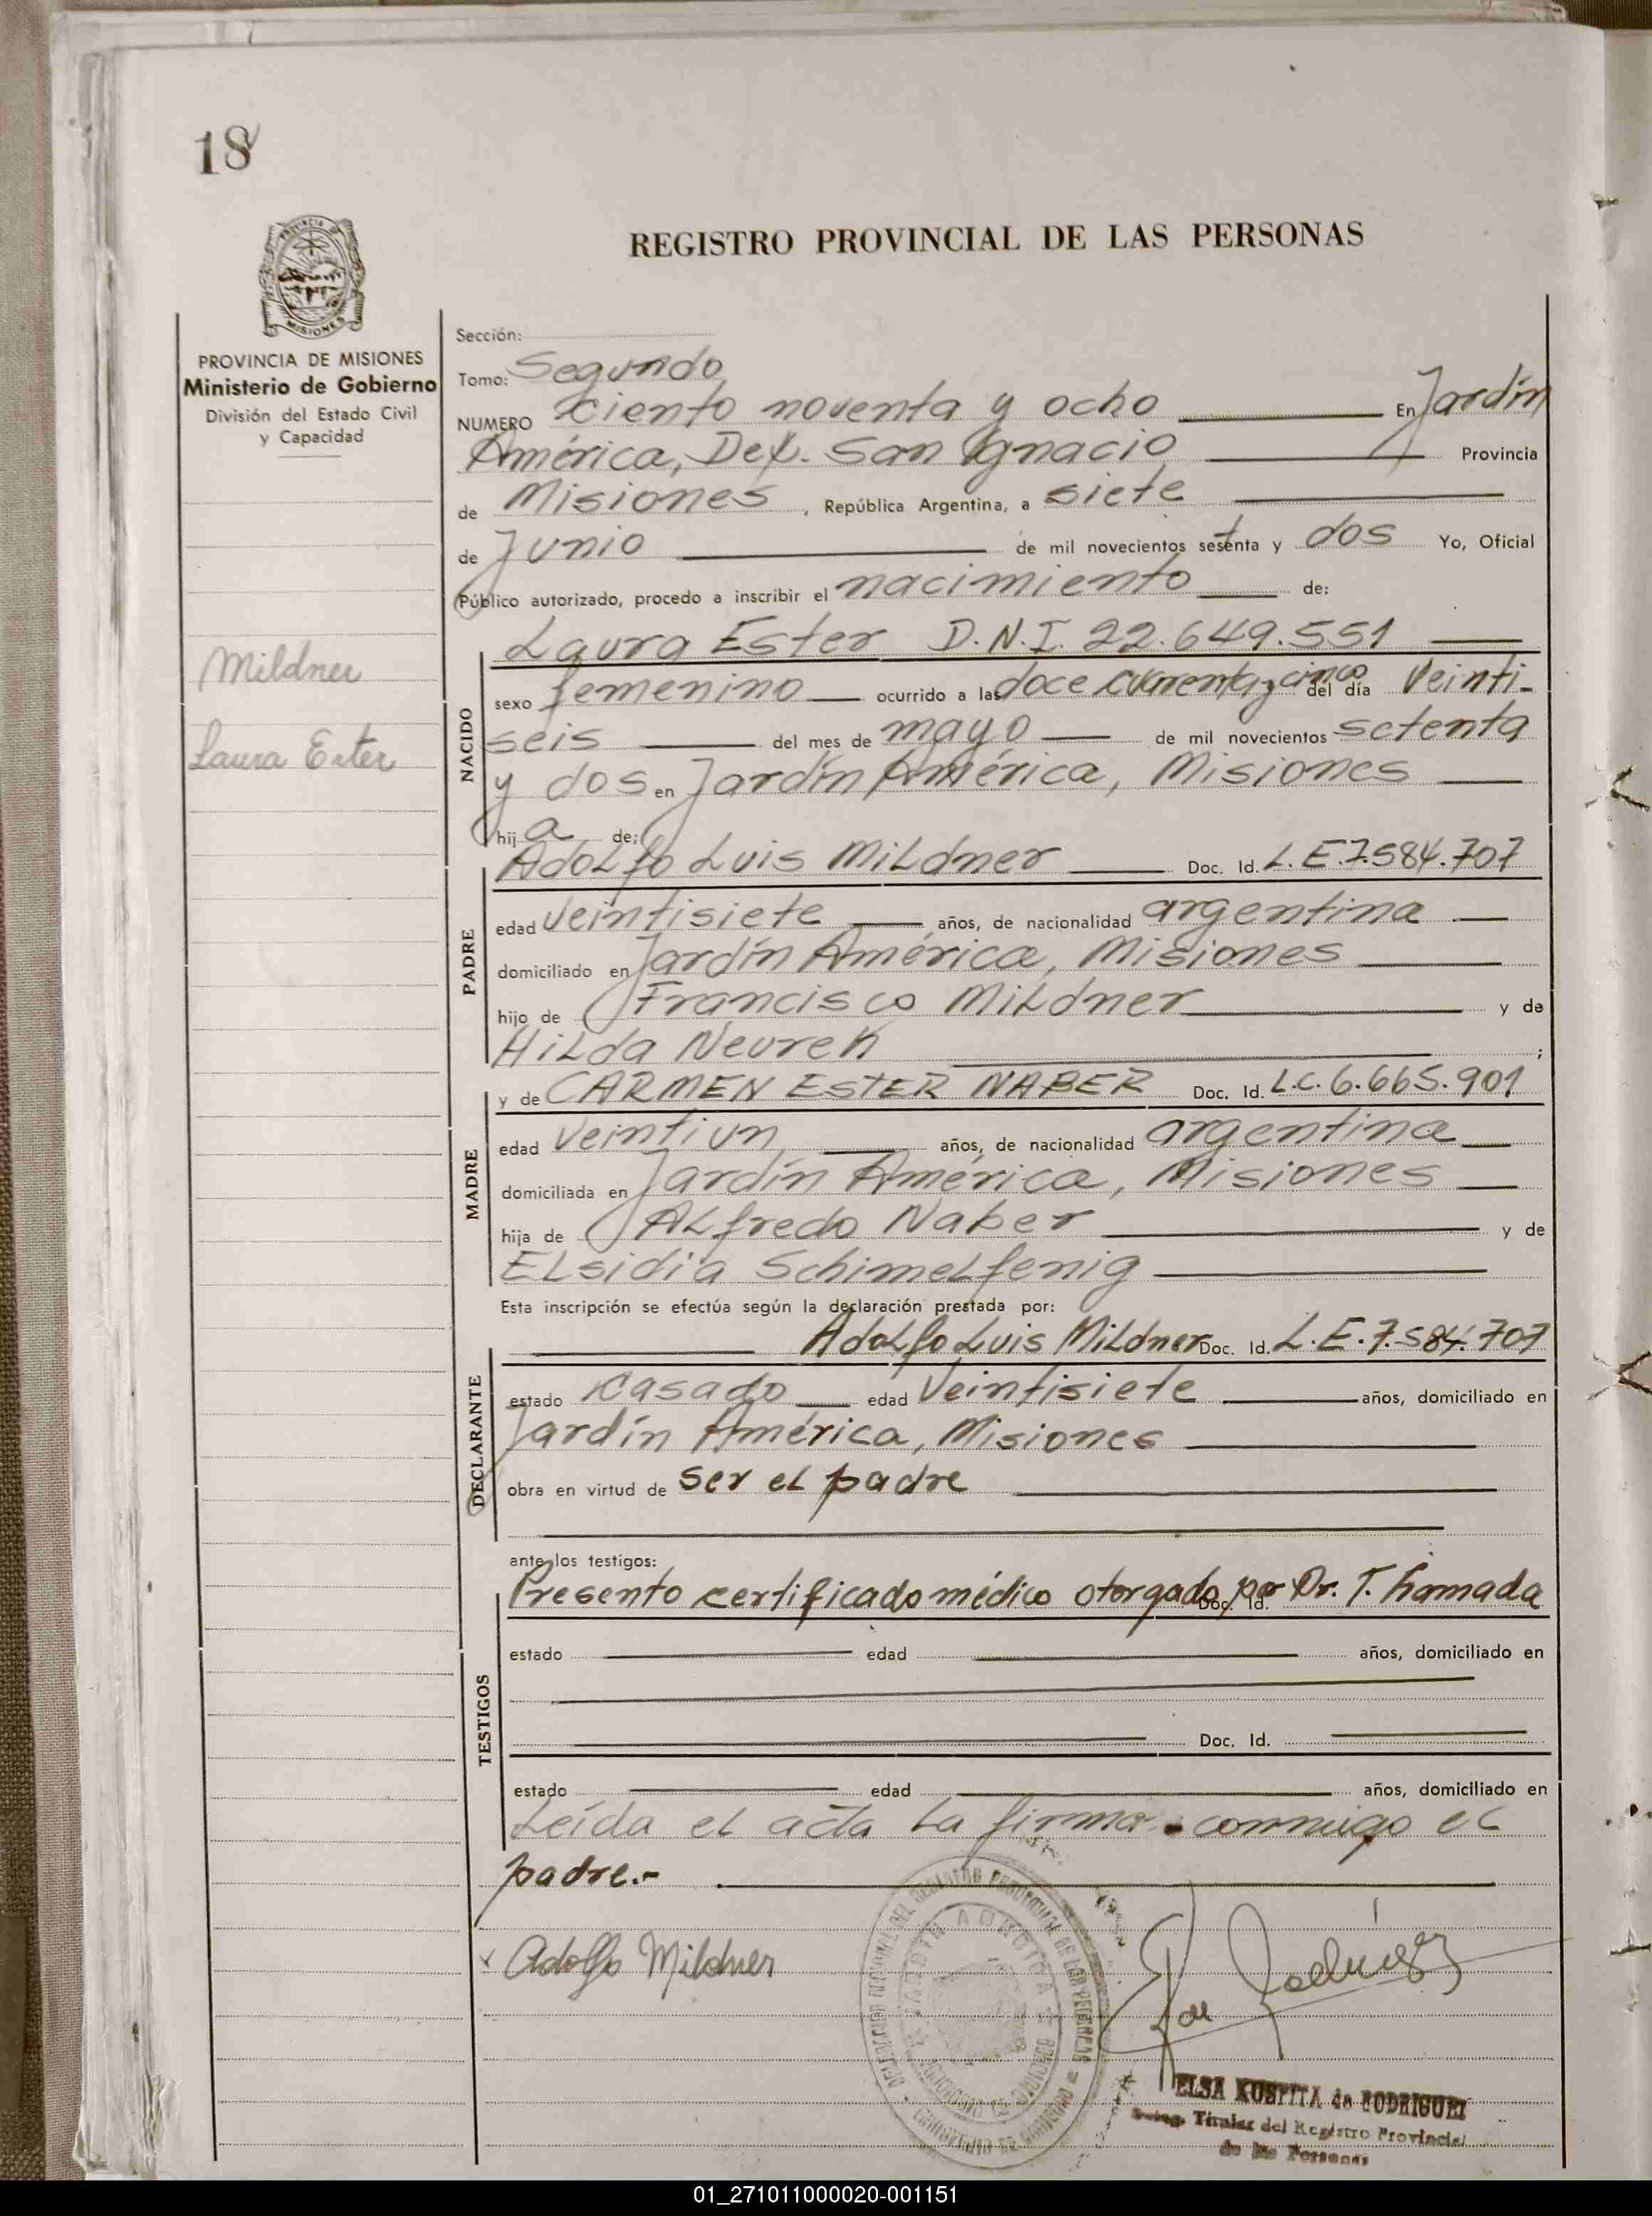 18
REGISTRO PROVINCIAL DE LAS PERSONAS
MISIONES
PROVINCIA DE MISIONES
Ministerio de Gobierno
División del Estado Civil
y Capacidad
Mildner
Laura Ester
Sección:
Tomo: Segundo
NUMERO ciento noventa y ocho En Jardín
América, Dep. San Ignacio Provincia
de Misiones, República Argentina, a siete
de Junio de mil novecientos setenta y dos Yo, Oficial
Público autorizado, procedo a inscribir el nacimiento de:
NACIDO
Laura Ester D.N.I. 22.649.551
sexo femenino ocurrido a las doce cuarenta y cinco del día Veinti-
seis del mes de mayo de mil novecientos setenta
y dos en Jardín América, Misiones
hij a de:
PADRE
Adolfo Luis Mildner Doc. Id. L.E.7.584.707
edad Veintisiete años, de nacionalidad argentina
domiciliado en Jardín América, Misiones
hijo de Francisco Mildner y de
Hilda Neureh ;
MADRE
y de CARMEN ESTER NABER Doc. Id. L.C. 6.665.901
edad Veintiun años, de nacionalidad argentina
domiciliada en Jardín América, Misiones
hija de Alfredo Naber y de
Elsidia Schimelfenig
Esta inscripción se efectúa según la declaración prestada por:
DECLARANTE
Adolfo Luis Mildner Doc. Id. L.E.7.584.707
estado casado edad Veintisiete años, domiciliado en
Jardín América, Misiones
obra en virtud de ser el padre
ante los testigos:
TESTIGOS
Presento certificado médico otorgado por Dr. T. Hamada
Doc. Id.
estado edad años, domiciliado en
Doc. Id.
estado edad años, domiciliado en
Leída el acta la firma conmigo el
padre.-
Adolfo Mildner
de Rodríguez
ELSA KUSPITA de RODRIGUEZ
Deleg. Titular del Registro Provincial
de las Personas
01_271011000020-001151